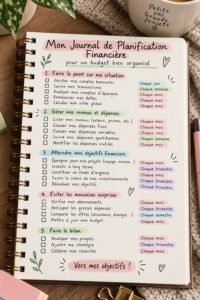 Petits
pas
Grands
Projets
Mon Journal de Planification
Financière
pour un budget bien organisé
1. Faire le point sur ma situation
Vérifier mes comptes bancaires Chaque jour
Suivre mes transactions Chaque semaine
Analyser mes comptes d'épargne Chaque mois
Recenser mes dettes Chaque mois
Calculer mon solde global Chaque mois
2. Gérer mes revenus et dépenses
Lister mes revenus (salaire, primes, etc.) Chaque mois
Classer mes dépenses fixes Chaque mois
Classer mes dépenses variables Chaque mois
Suivre mes dépenses quotidiennes Chaque semaine
Identifier les dépenses inutiles Chaque mois
3. Atteindre mes objectifs financiers
Épargner pour mes projets Chaque mois
Investir à long terme Chaque trimestre
Constituer un fonds d'urgence Chaque mois
Suivre la valeur de mes investissements Chaque trimestre
Réévaluer mes objectifs Chaque trimestre
4. Éviter les mauvaises surprises
Vérifier mes abonnements Chaque mois
Anticiper les grosses dépenses Chaque trimestre
Comparer les offres (assurance, énergie...) Chaque semestre
Mettre à jour mon budget Chaque mois
5. Faire le bilan
Analyser mes progrès Chaque mois
Ajuster ma stratégie Chaque trimestre
Célébrer mes réussites Chaque mois
Vers mes objectifs !